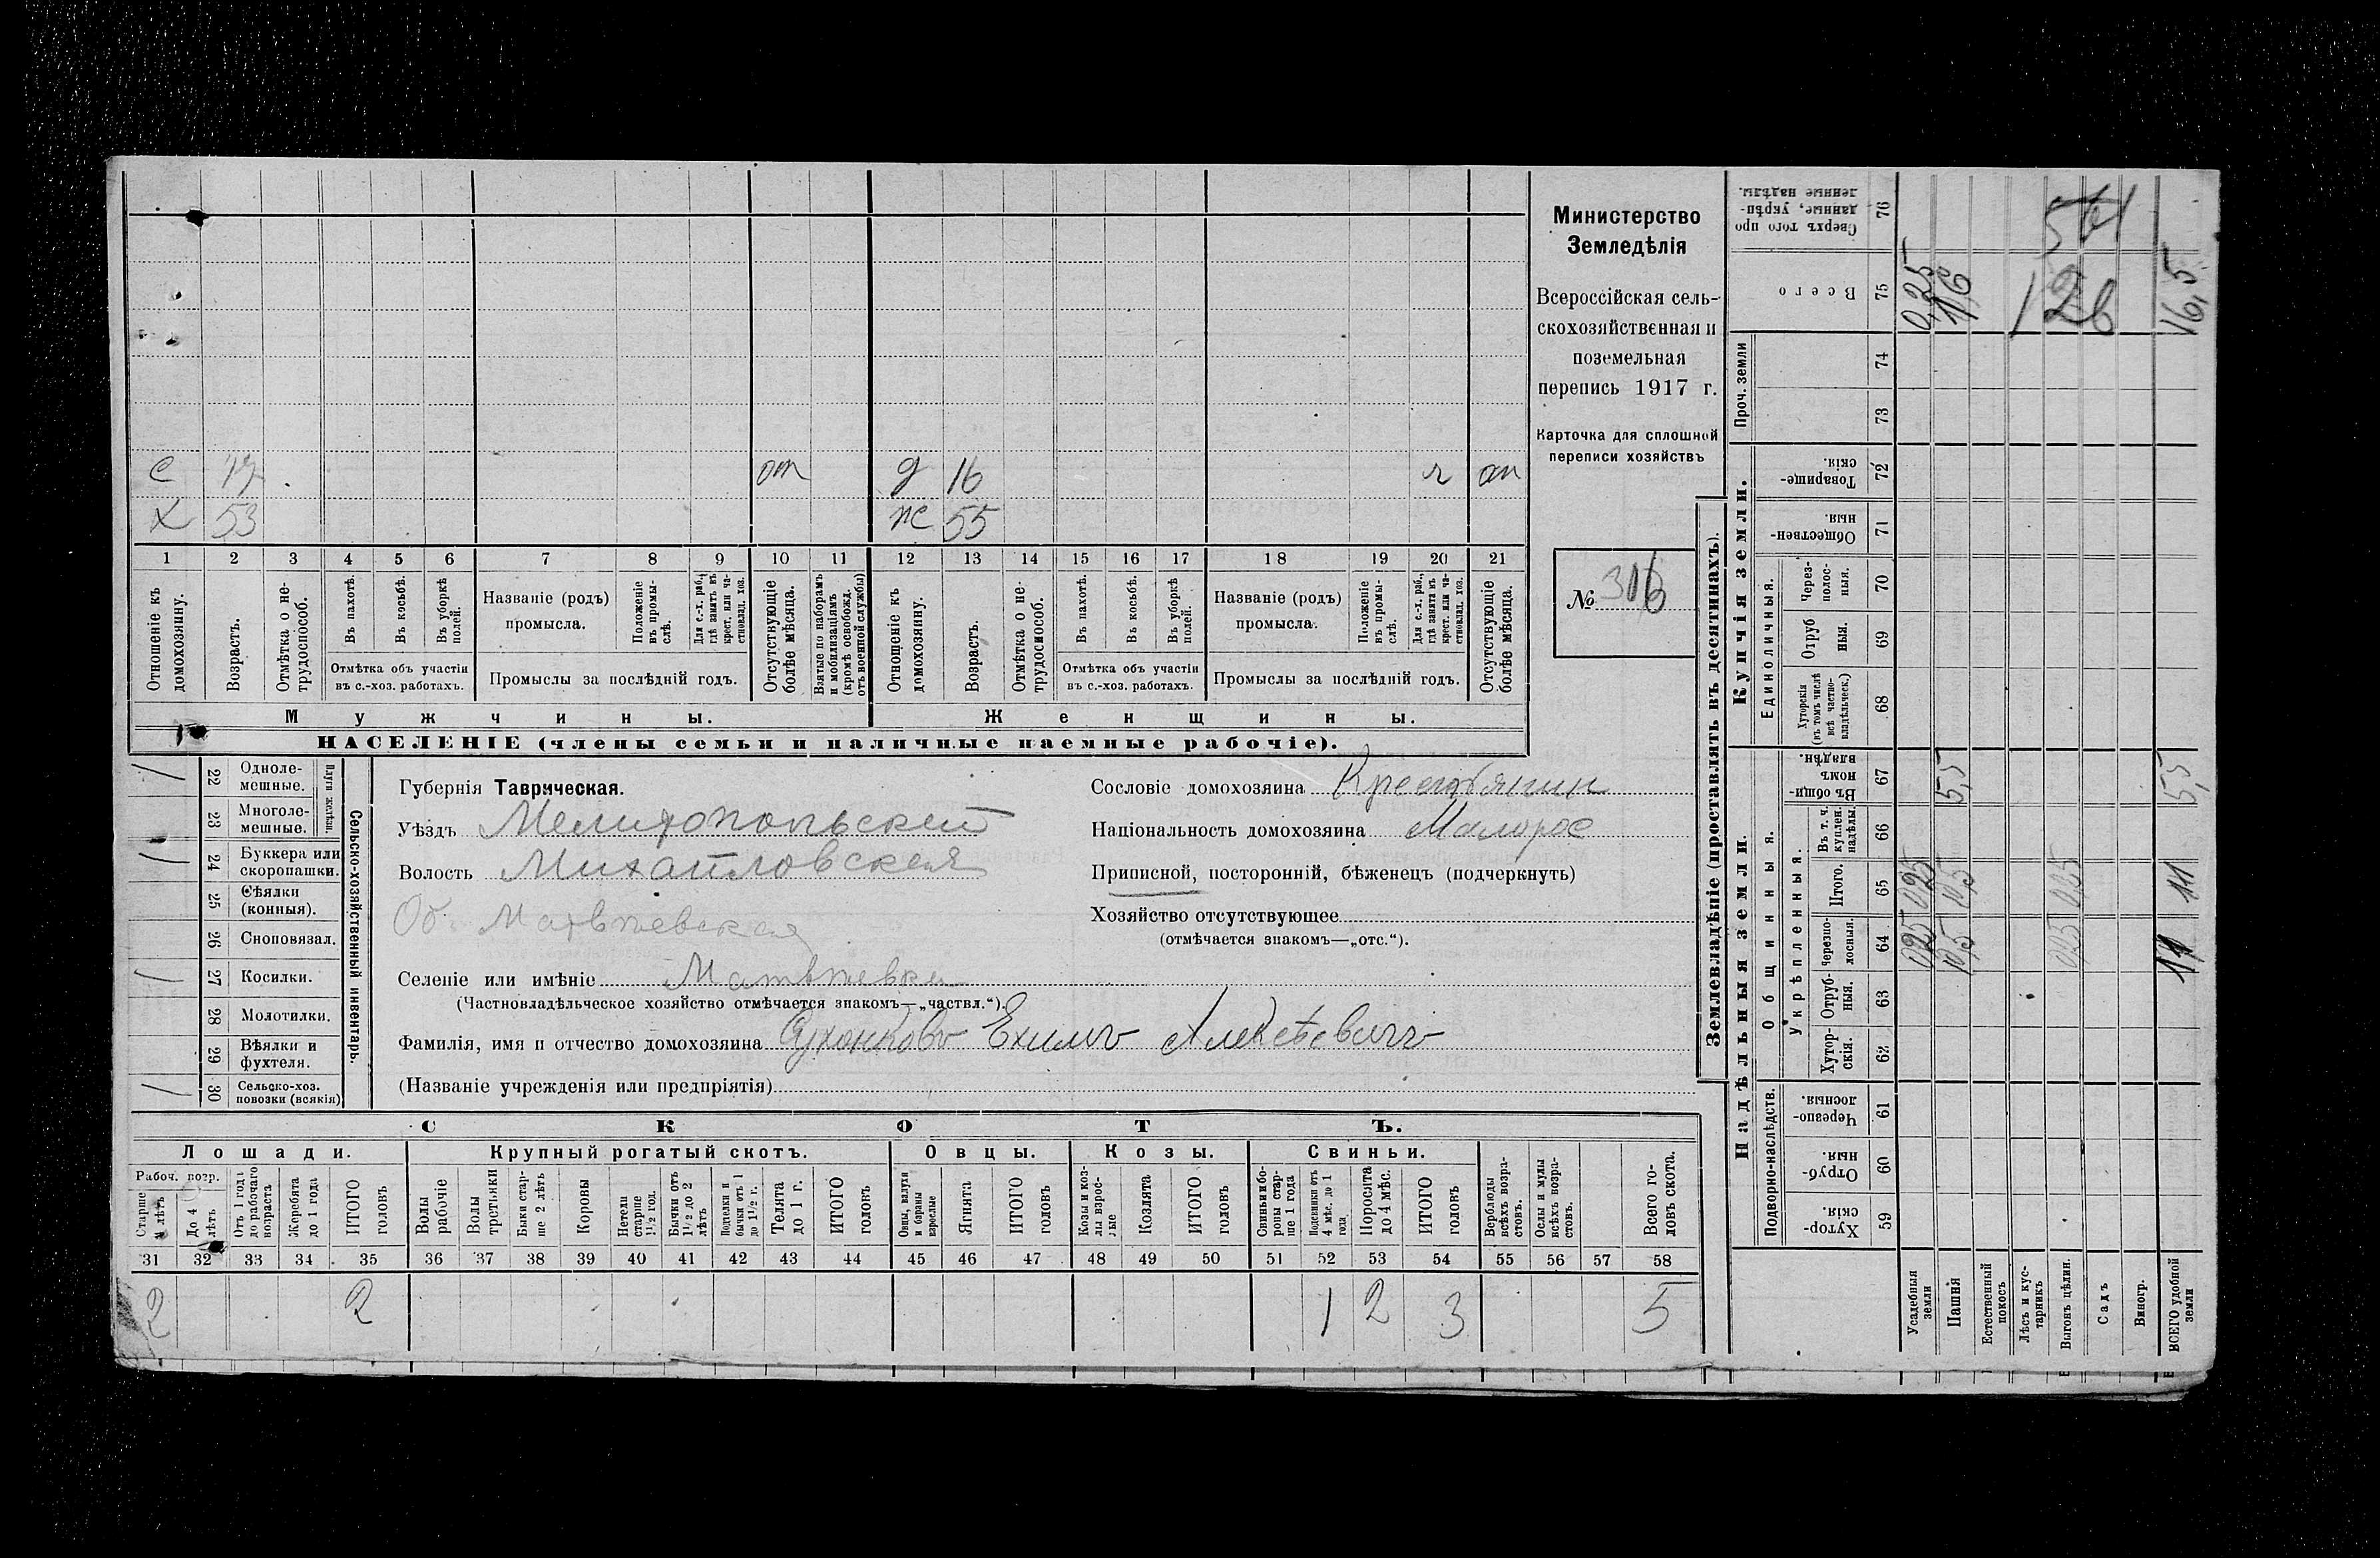 Министерство
Земледѣлія
Всероссійская сель-
скохозяйственная и
поземельная
перепись 1917 г.
Карточка для сплошной
переписи хозяйствъ
№ 316
с 17 от д 16 ч от
х 53 ж 55
1 2 3 4 5 6 7 8 9 10 11 12 13 14 15 16 17 18 19 20 21
Отношеніе къ домохозяину.
Возрастъ.
Отмѣтка о не-трудоспособ.
Въ пахотѣ.
Въ косьбѣ.
Въ уборкѣ полей.
Отмѣтка объ участіи
въ с.-хоз. работахъ.
Названіе (родъ)
промысла.
Положеніе въ промы-слѣ.
Для с.-х. раб., гдѣ занятъ въ крест. или ча-стновлад. хоз.
Промыслы за послѣдній годъ.
Отсутствующіе болѣе мѣсяца.
Взятые по наборамъ и мобилизаціямъ (кромѣ освобожд. отъ военной службы)
Отношеніе къ домохозяину.
Возрастъ.
Отмѣтка о не-трудоспособ.
Въ пахотѣ.
Въ косьбѣ.
Въ уборкѣ полей.
Отмѣтка объ участіи
въ с.-хоз. работахъ.
Названіе (родъ)
промысла.
Положеніе въ промы-слѣ.
Для с.-х. раб., гдѣ занята въ крест. или ча-стновлад. хоз.
Промыслы за послѣдній годъ.
Отсутствующіе болѣе мѣсяца.
Мужчины. Женщины.
НАСЕЛЕНІЕ (члены семьи и наличные наемные рабочіе).
Сельско-хозяйственный инвентарь.
Плуги желѣзн.
/ 22 Одноле-мешные.
23 Многоле-мешные.
/ 24 Буккера или скоропашки.
25 Сѣялки (конныя).
26 Сноповязал.
/ 27 Косилки.
28 Молотилки.
29 Вѣялки и фухтеля.
/ 30 Сельско-хоз. повозки (всякія)
Губернія Таврическая.
Уѣздъ Мелитопольский
Волость Михайловская
Об. Матвѣевская
Селеніе или имѣніе Матвѣевка
(Частновладѣльческое хозяйство отмѣчается знакомъ—„частвл.“).
Фамилія, имя и отчество домохозяина Сухоиковъ Ехимъ Алексѣевичъ
(Названіе учрежденія или предпріятія)
Сословіе домохозяина Крестьянин
Національность домохозяина Малорос
Приписной, посторонній, бѣженецъ (подчеркнуть)
Хозяйство отсутствующее
(отмѣчается знакомъ—„отс.“).
СКОТЪ.
Лошади. Крупный рогатый скотъ. Овцы. Козы. Свиньи.
Рабоч. возр.
Старше 4 лѣтъ
До 4 лѣтъ
Отъ 1 года до рабочаго возраста
Жеребята до 1 года
ИТОГО головъ
Волы рабочіе
Волы третьяки
Быки стар-ше 2 лѣтъ
Коровы
Нетели старше 1½ год.
Бычки отъ 1½ до 2 лѣтъ
Подтелки и бычки отъ 1 до 1½ г.
Телята до 1 г.
ИТОГО головъ
Овцы, валухи и бараны взрослые
Ягнята
ИТОГО головъ
Козы и коз-лы взрос-лые
Козлята
ИТОГО головъ
Свиньи и бо-ровы стар-ше 1 года
Подсвинки отъ 4 мѣс. до 1 года
Поросята до 4 мѣс.
ИТОГО головъ
Верблюды всѣхъ возра-стовъ.
Ослы и мулы всѣхъ возра-стовъ.
Всего го-ловъ скота.
31 32 33 34 35 36 37 38 39 40 41 42 43 44 45 46 47 48 49 50 51 52 53 54 55 56 57 58
2 2 1 2 3 5
Землевладѣніе (проставлять въ десятинахъ).
Надѣльныя земли. Купчія земли. Проч. земли
Подворно-наслѣдств. Общинныя. Укрѣпленныя. Единоличныя.
59 Хутор-скія.
60 Отруб-ныя.
61 Черезпо-лосныя.
62 Хутор-скія.
63 Отруб-ныя.
64 Черезпо-лосныя.
65 Итого.
66 Въ т. ч. куплен. надѣлы
67 Въ общин-номъ владѣн.
68 Хуторскія (въ томъ числѣ всѣ частно-владѣльческ.)
69 Отрубныя.
70 Через-полос-ныя.
71 Обществен-ныя.
72 Товарище-скія.
73
74
75 Всего
76 Сверхъ того про данные, укрѣп-ленные надѣлы.
Усадебныя земли 0,25 0,25 0,25
Пашня 10,5 10,5 5,5 16
Естественный покосъ
Лѣсъ и кус-тарникъ
Выгонъ цѣлин. 0,25 0,25
Садъ
Виногр.
ВСЕГО удобной земли 11 11 5,5 16,5